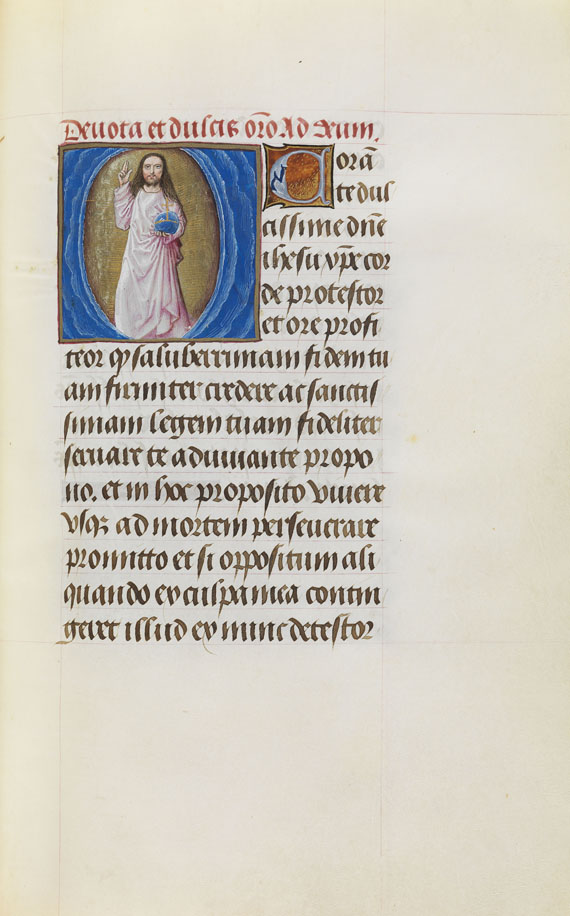 Deuota et dulcis orō Ad xum.
Corā
te dul
cissime dnē
ihesu xpe cor
de protestor
et ore profi
teor qp saluberrimam fidem tu
am firmiter credere ac sanctis
simam legem tuam fideliter
seruare te adiuuante propo
no. et in hoc proposito viuere
vsqz ad mortem perseuerare
promitto et si oppositum ali
quando ex culpa mea contin
geret illud ex nunc detestor